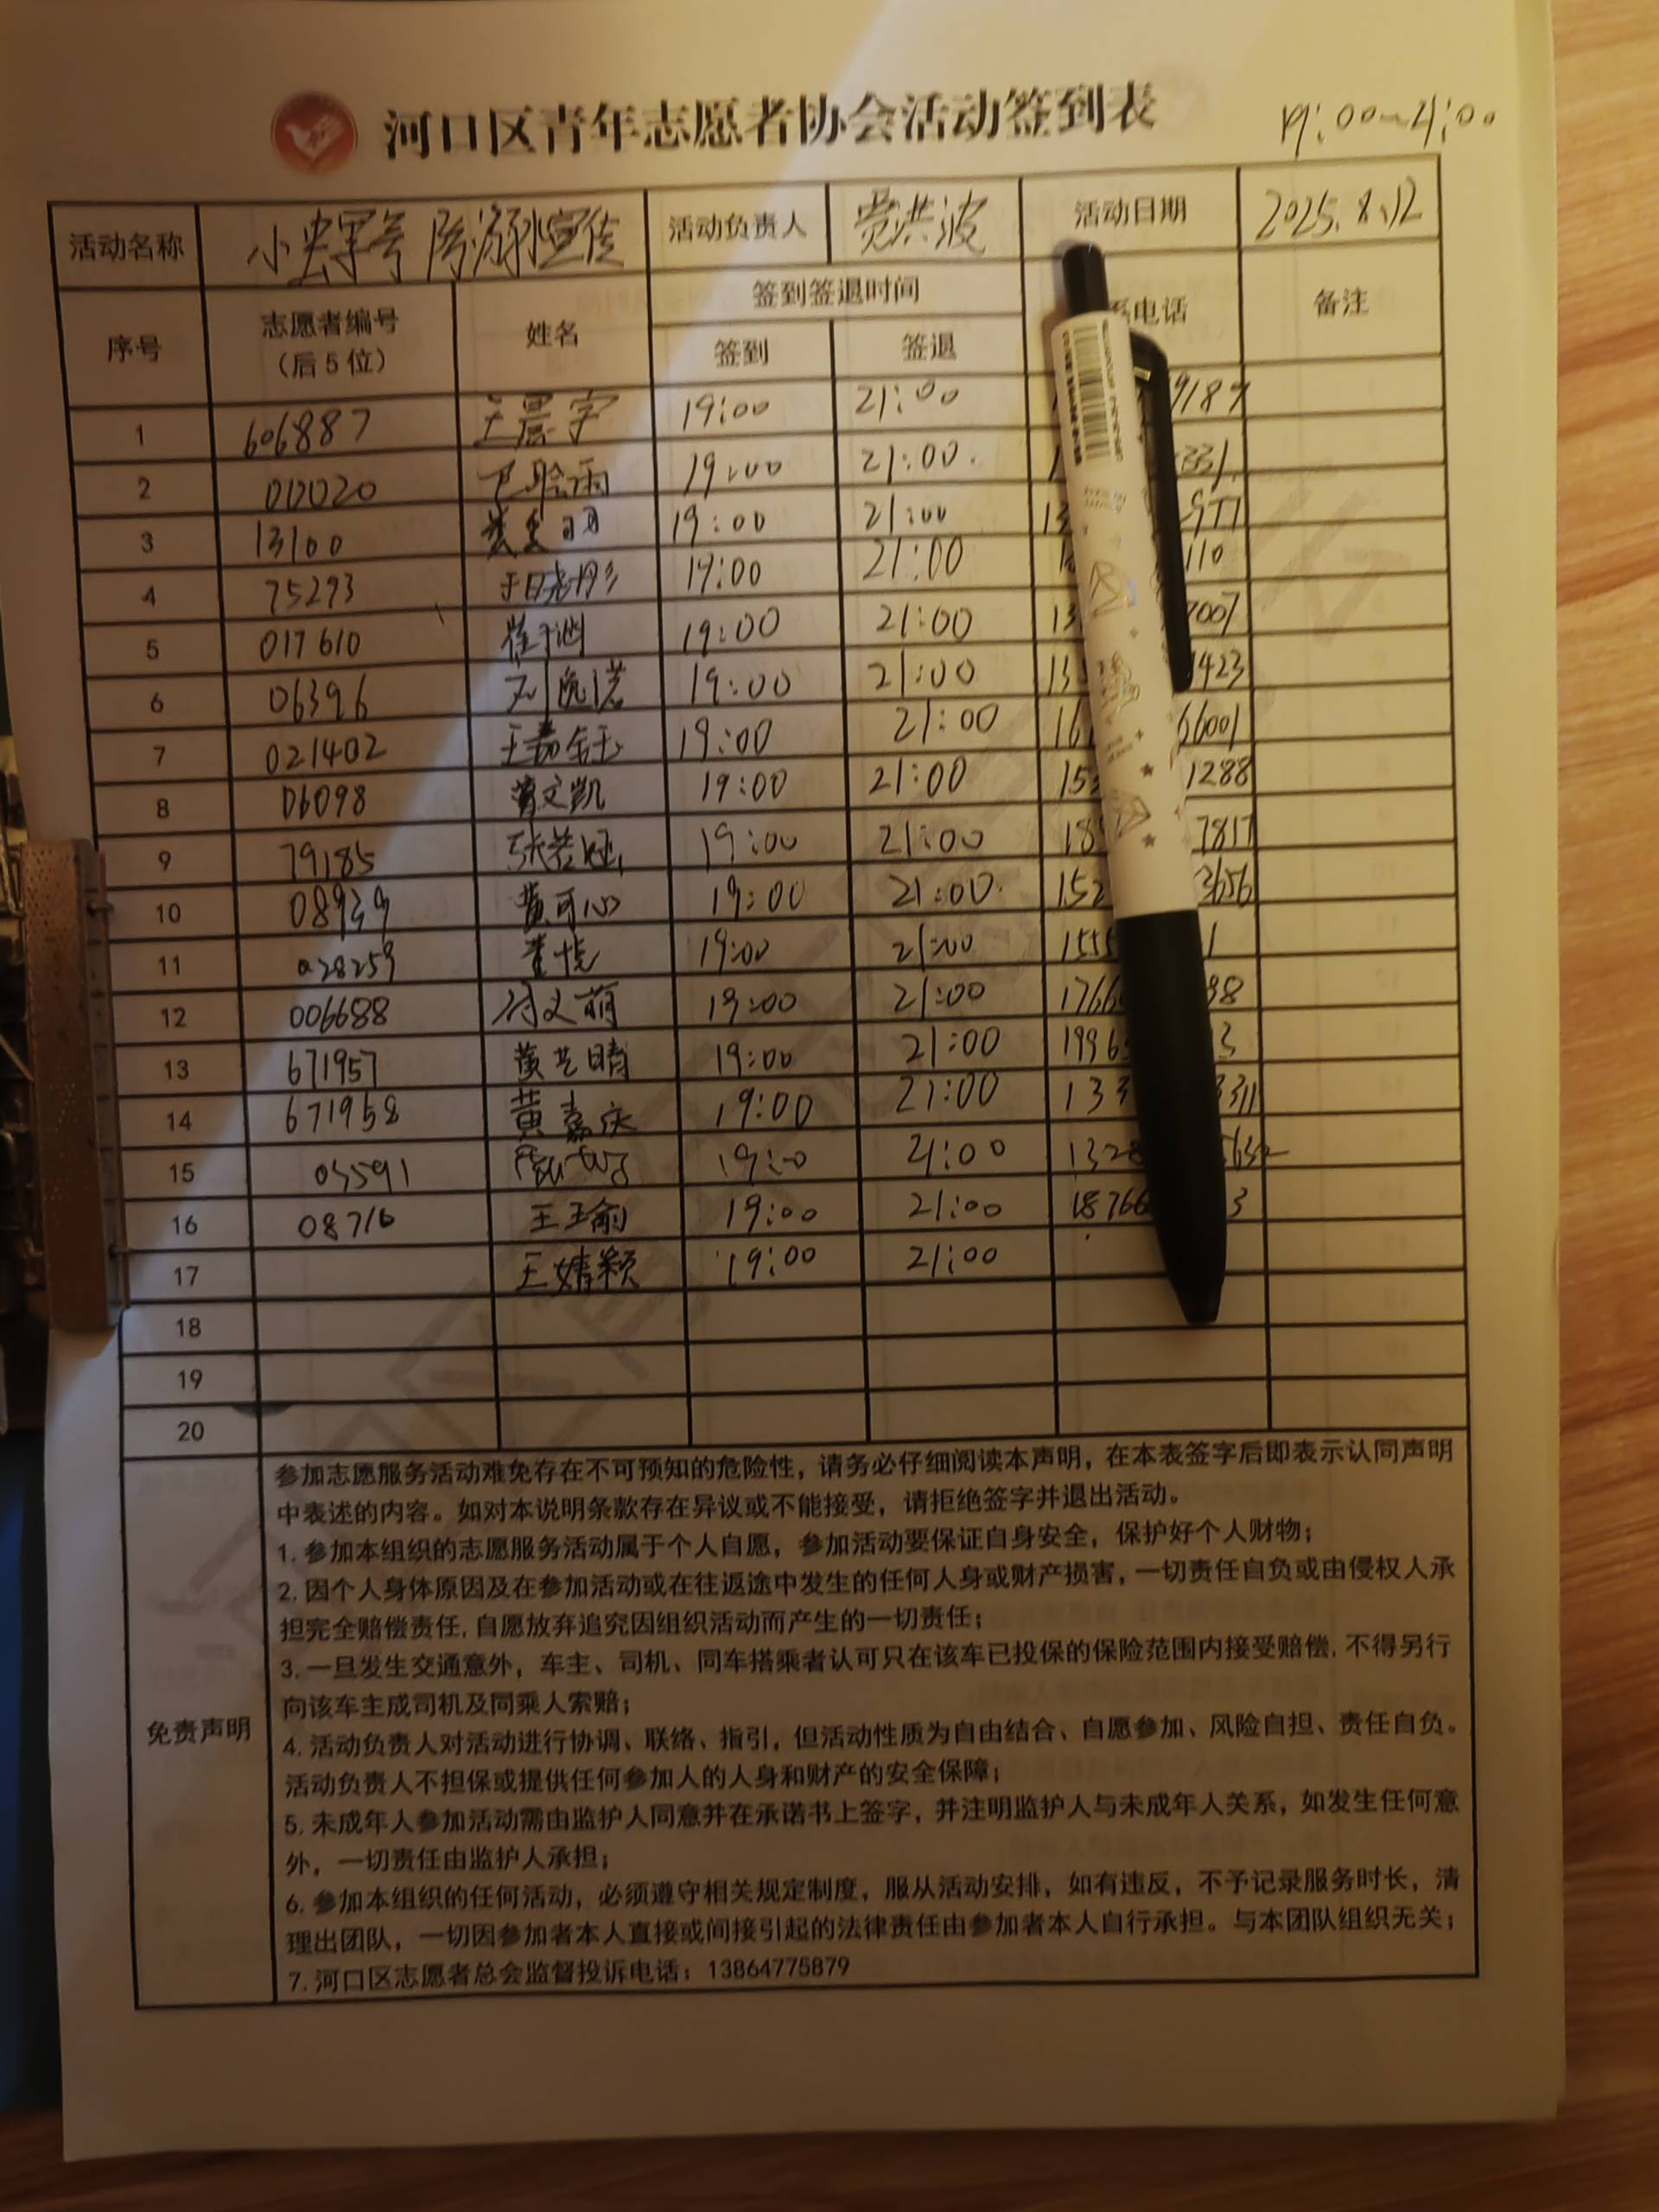 河口区青年志愿者协会活动签到表
19:00~21:00
活动名称 小 号 防溺水宣传 活动负责人 黄洪波 活动日期 2025.8.12
序号 志愿者编号（后5位） 姓名 签到签退时间 电话 备注
签到 签退
1 606887 王晨宇 19:00 21:00 9187
2 00020 19:00 21:00. 331
3 13100 19:00 21:00 13
4 75293 于晓彤 19:00 21:00 110
5 017610 崔 19:00 21:00 13 7007
6 06396 刘 诺 19:00 21:00 1423
7 021402 王嘉钰 19:00 21:00 16 6001
8 06098 曹文凯 19:00 21:00 15 1288
9 79185 张若 19:00 21:00 18 7817
10 08939 黄可心 19:00 21:00. 152 3656
11 028259 董悦 19:00 21:00 155 1
12 006688 付文萌 19:00 21:00 1766 98
13 671957 黄艺晴 19:00 21:00 1996 3
14 671958 黄嘉庆 19:00 21:00 133 3311
15 03591 19:00 21:00 1328 5632
16 08716 王玉俞 19:00 21:00 18766 3
17 王婧颖 19:00 21:00
18
19
20
免责声明
参加志愿服务活动难免存在不可预知的危险性，请务必仔细阅读本声明，在本表签字后即表示认同声明
中表述的内容。如对本说明条款存在异议或不能接受，请拒绝签字并退出活动。
1. 参加本组织的志愿服务活动属于个人自愿，参加活动要保证自身安全，保护好个人财物；
2. 因个人身体原因及在参加活动或在往返途中发生的任何人身或财产损害，一切责任自负或由侵权人承
担完全赔偿责任，自愿放弃追究因组织活动而产生的一切责任；
3. 一旦发生交通意外，车主、司机、同车搭乘者认可只在该车已投保的保险范围内接受赔偿，不得另行
向该车主成司机及同乘人索赔；
4. 活动负责人对活动进行协调、联络、指引，但活动性质为自由结合、自愿参加、风险自担、责任自负。
活动负责人不担保或提供任何参加人的人身和财产的安全保障；
5. 未成年人参加活动需由监护人同意并在承诺书上签字，并注明监护人与未成年人关系，如发生任何意
外，一切责任由监护人承担；
6. 参加本组织的任何活动，必须遵守相关规定制度，服从活动安排，如有违反，不予记录服务时长，清
理出团队，一切因参加者本人直接或间接引起的法律责任由参加者本人自行承担。与本团队组织无关；
7. 河口区志愿者总会监督投诉电话：13864775879